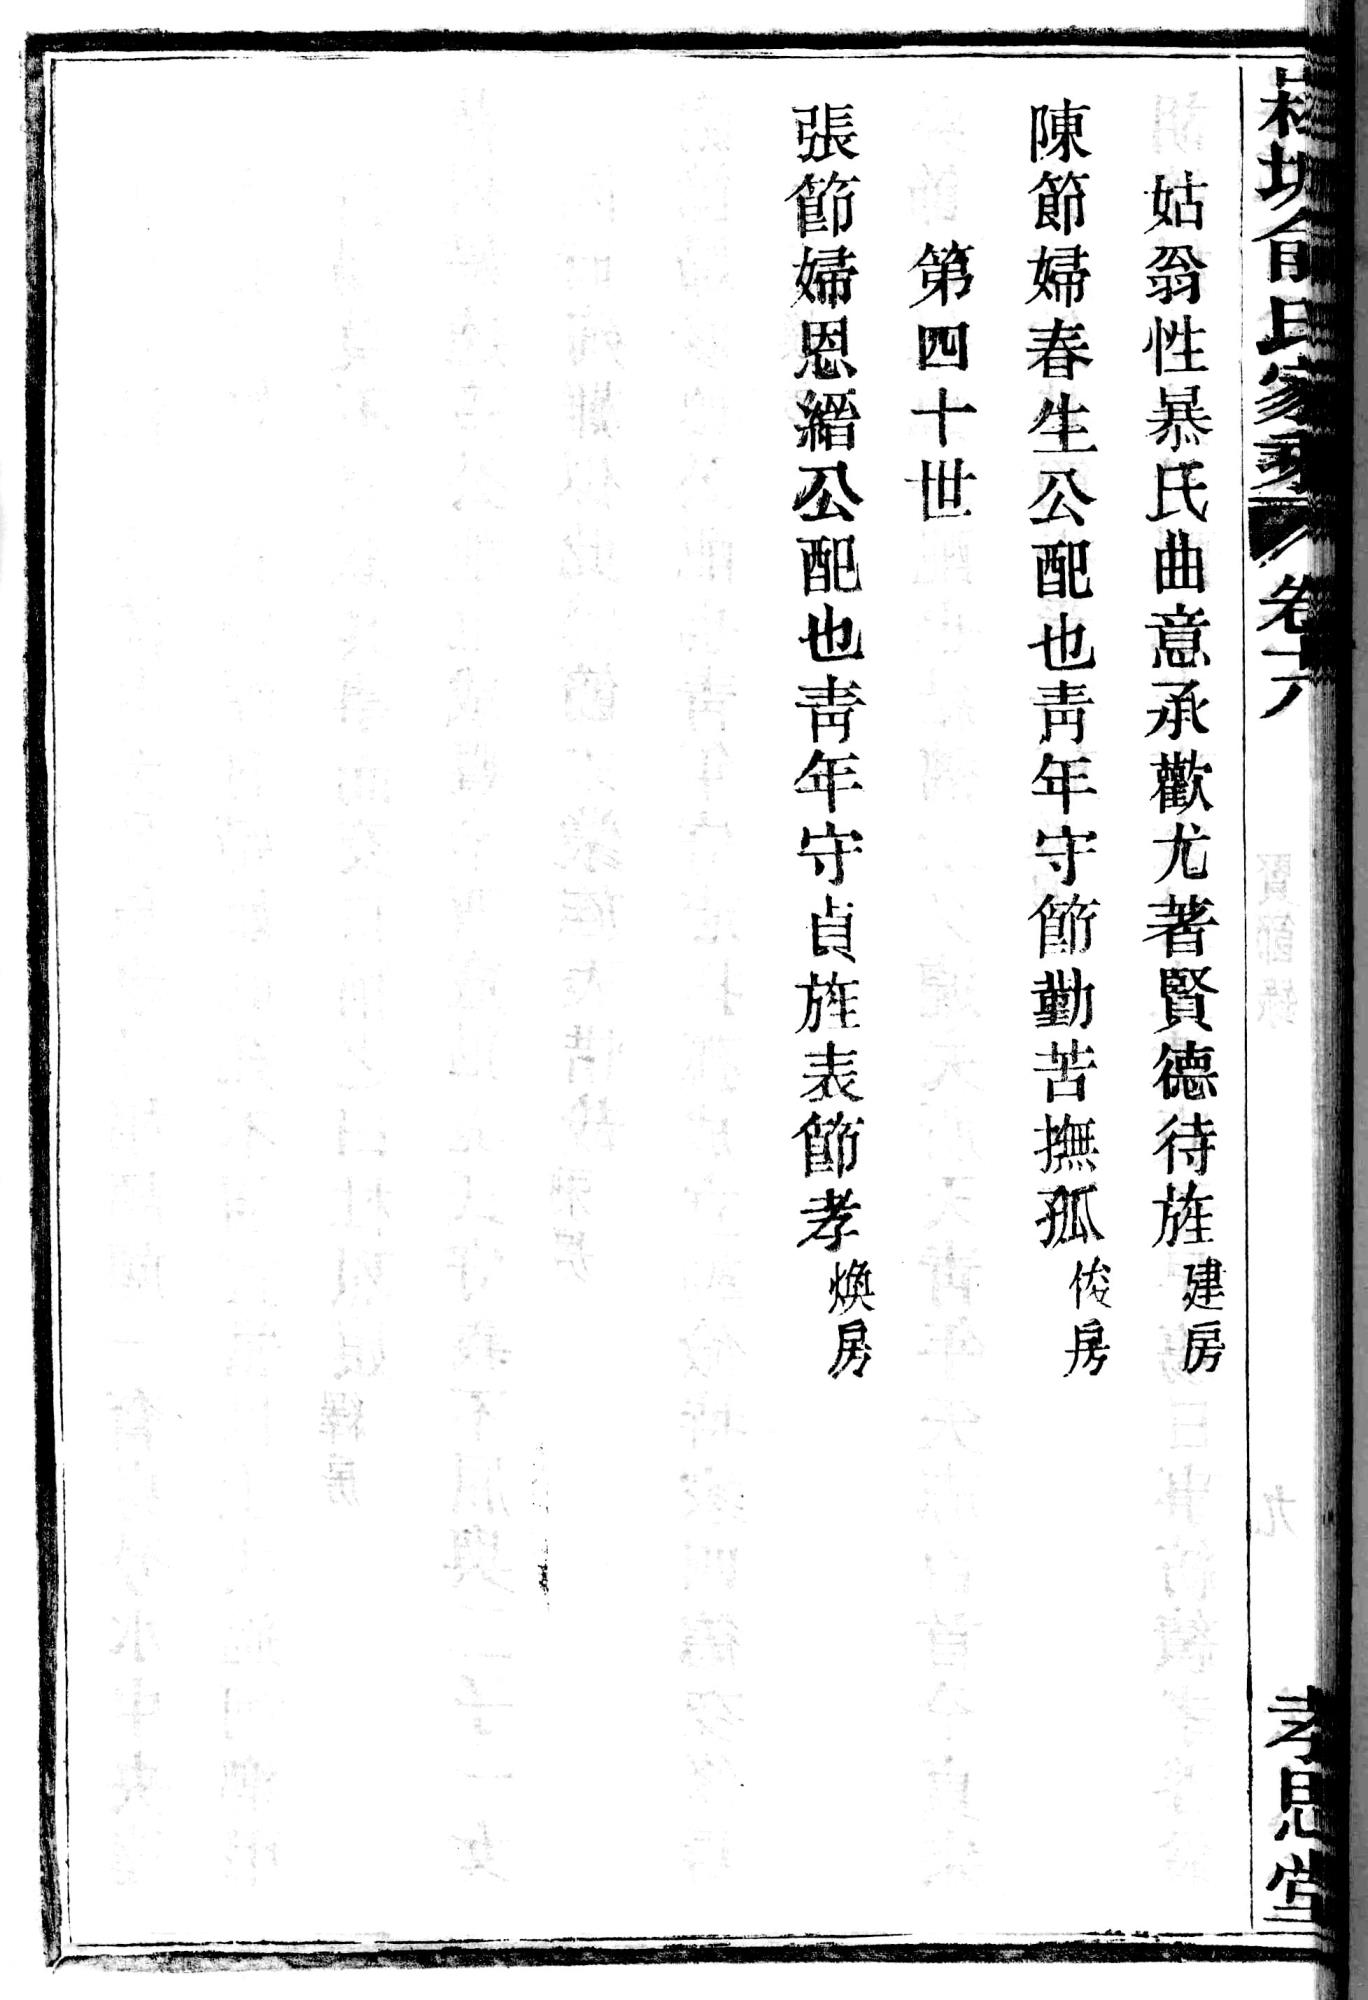 俞氏家乘 卷十六
孝思堂
姑翁性暴氏曲意承歡尤著賢德待旌建房
陳節婦春生公配也靑年守節勤苦撫孤俊房
第四十世
張節婦恩縉公配也靑年守貞旌表節孝煥房